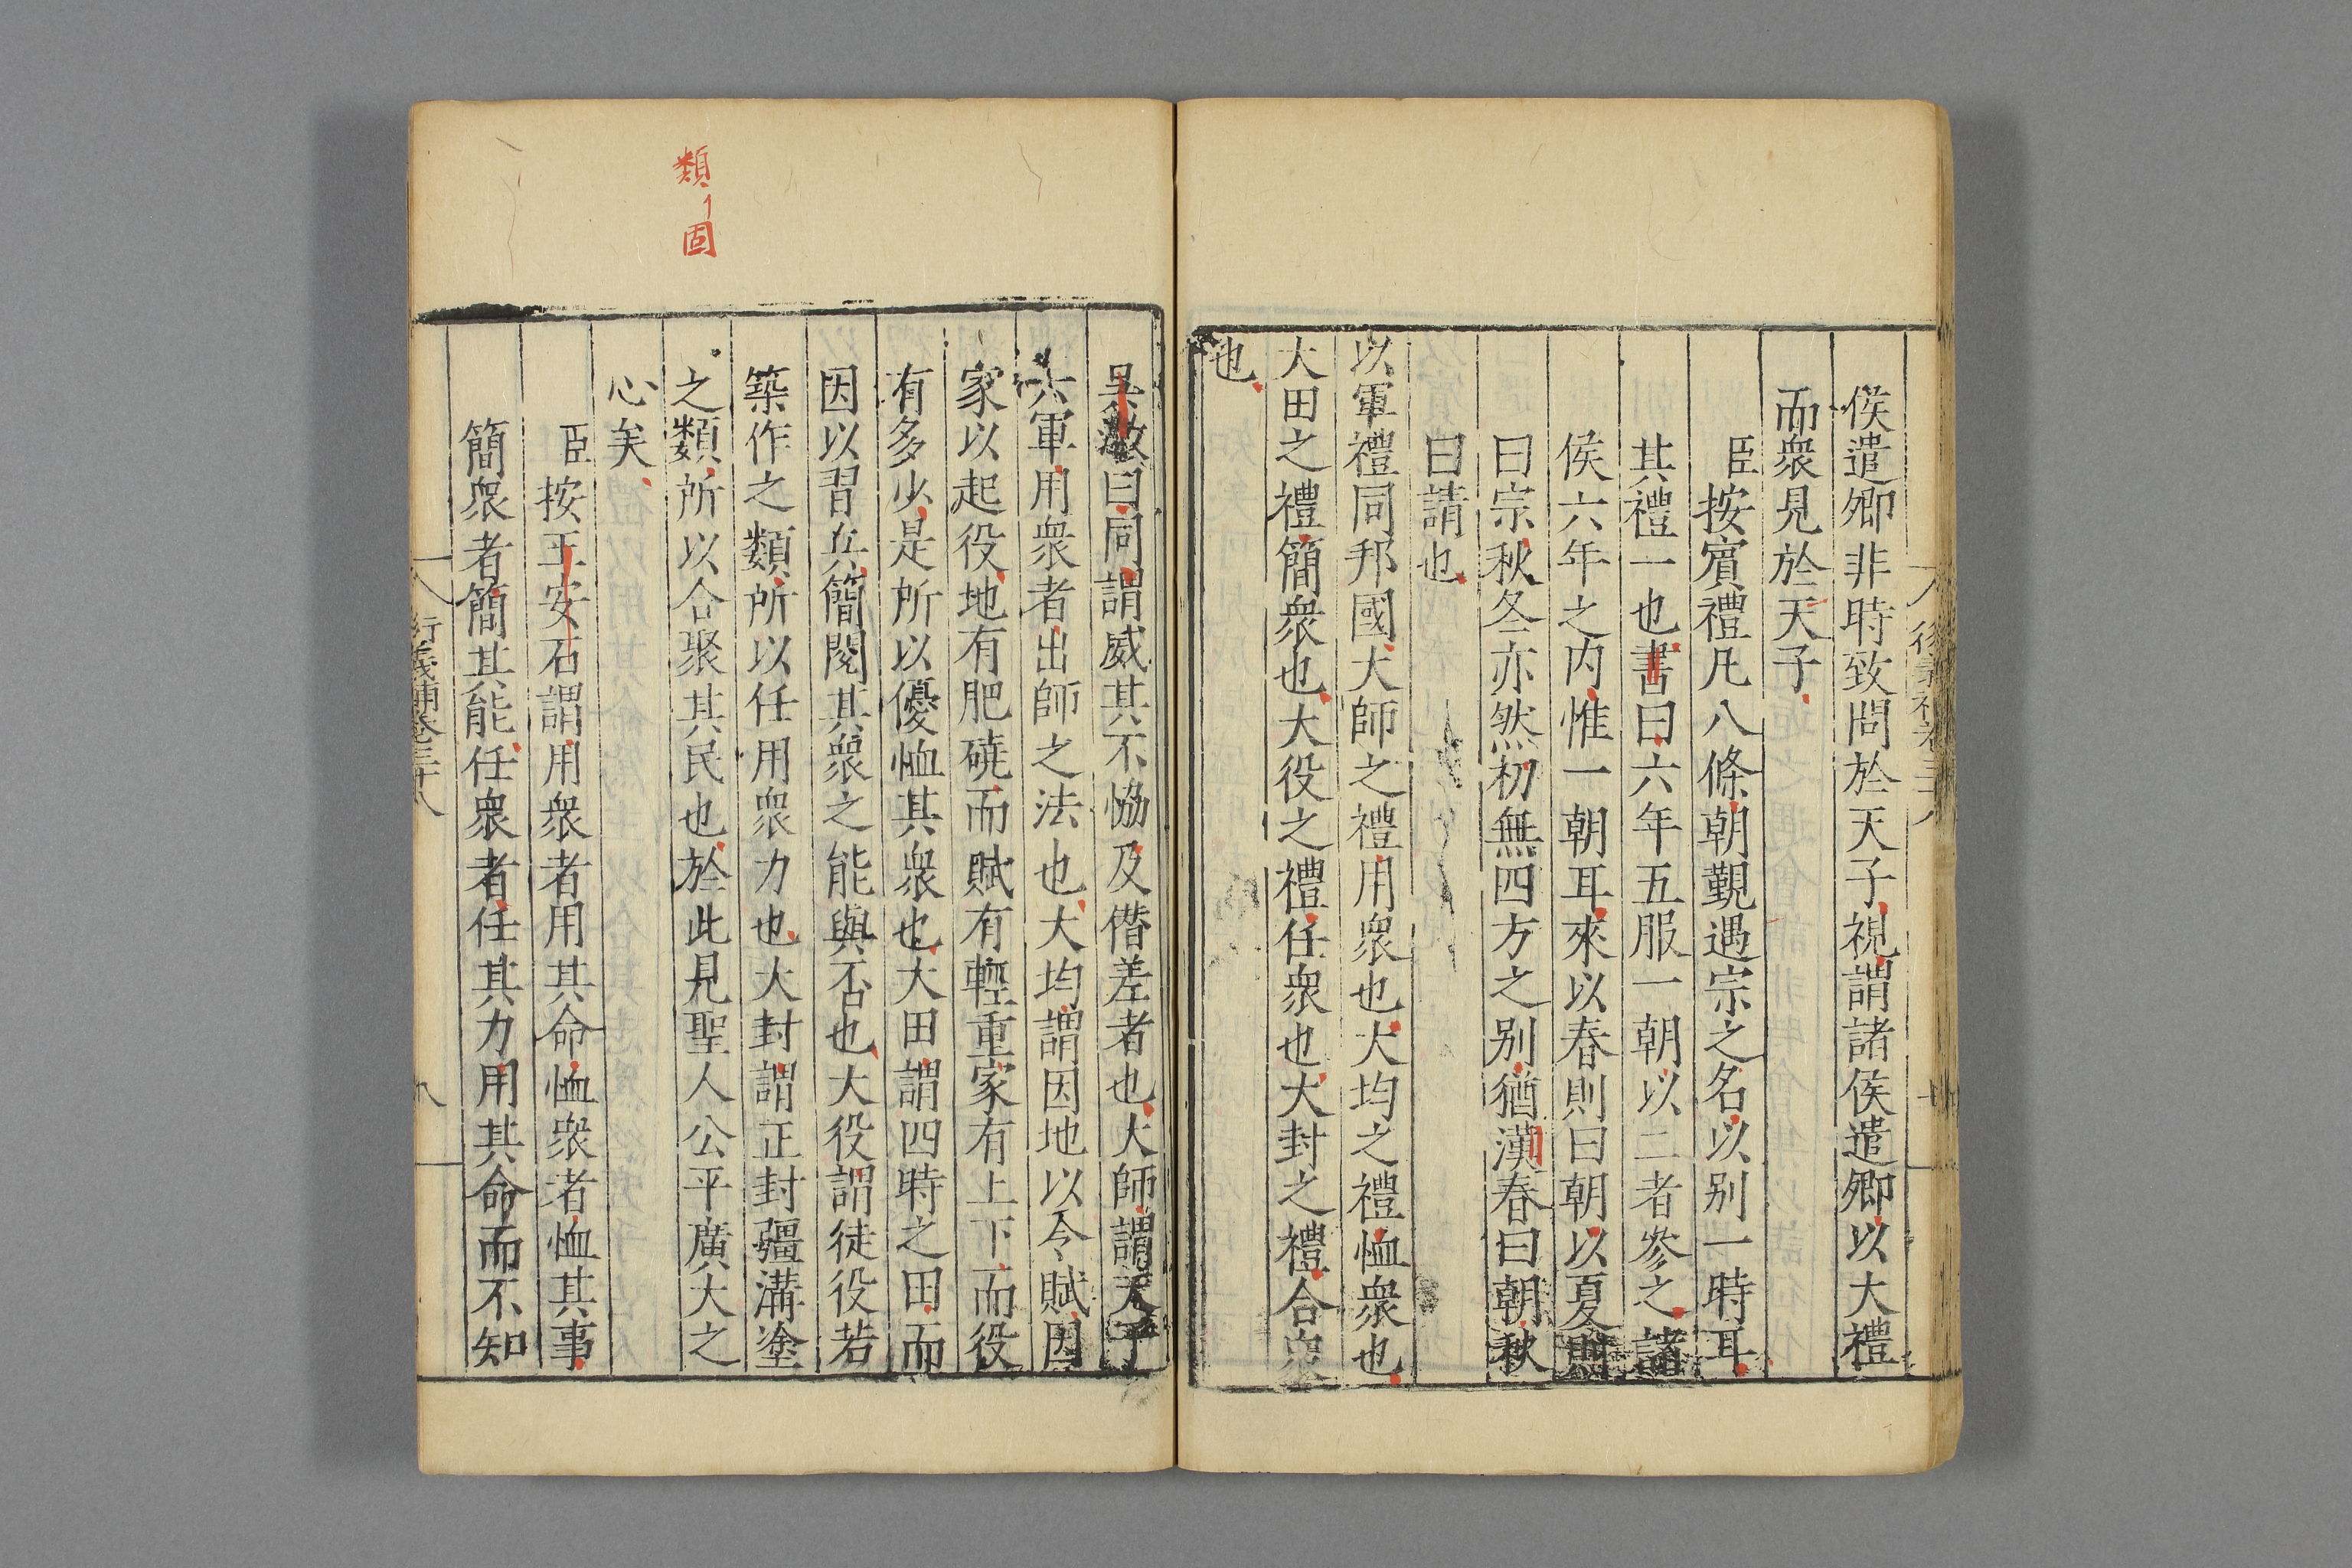 侯遣卿非時致問於天子視謂諸侯遣卿以大禮
而衆見於天子
臣按賓禮凡八條朝覲遇宗之名以别一時耳
其禮一也書曰六年五服一朝以二者參之諸
侯六年之内惟一朝耳來以春則曰朝以夏則
曰宗秋冬亦然初無四方之别猶漢春曰朝秋
曰請也
以軍禮同邦國大師之禮用衆也大均之禮恤衆也
大田之禮簡衆也大役之禮任衆也大封之禮合衆
也
吳澂曰同謂威其不恊及僭差者也大師謂天子
六軍用衆者出師之法也大均謂因地以令賦因
家以起役地有肥磽而賦有輕重家有上下而役
有多少是所以優恤其衆也大田謂四時之田而
因以習兵簡閱其衆之能與否也大役謂徒役若
築作之類所以任用衆力也大封謂正封疆溝塗
之類所以合聚其民也於此見聖人公平廣大之
心矣
臣按王安石謂用衆者用其命恤衆者恤其事
簡衆者簡其能任衆者任其力用其命而不知
衍義補卷三十八
八
類
固